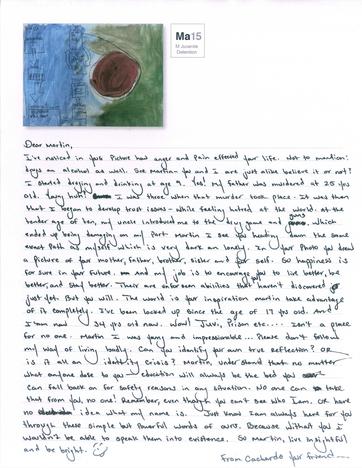 Ma15
M Juvenile
Detention
Dear Martin,
I've noticed in your Picture how anger and Pain effected your life. Not to mention:
drugs an alcohol as well. See Martian you and I are just alike believe it or not?
I started druging and drinking at age 9. Yes! My father was murdered at 25 yrs
old. Long huh! I was three when that murder took place. It was then
that I began to develop trust issues while feeling hatred at the world. At the
tender age of ten, my uncle introduced me to the drug game and guns which
ended up being damaging on my part. Martin I see you heading down the same
exact Path as myself which is very dark an lonely. In your Photo you drew
a picture of your mother, father, brother, sister and your self. So happiness is
for sure in your future. and my job is to encourage you to live better, be
better, and stay better. Their are unforseen abilities that haven't discovered
just yet. But you will. The world is your inspiration martin take advantage
of it completely. I've been locked up since the age of 17 yrs old. And
I'am now 34 yrs old now. Wow! Juvi, Prison etc.... Isn't a place
for no one. Martin I was young and impressionable... Please don't follow
my way of living badly. Can you identify your own true reflection? OR
is it all an identity crisis? Martin, understand that no matter
what anyone dose to you education will always be the bed you
can fall back on for safety reasons in any situation. No one can take
that from you, no one! Remember, even though you can't see who I am, OR have
no idea what my name is. Just know I am always here for you
through these simple but Powerful words of ours. Because without you I
wouldn't be able to speak them into existence. So Martin, live insightful
and be bright.
From Cachardo your friend